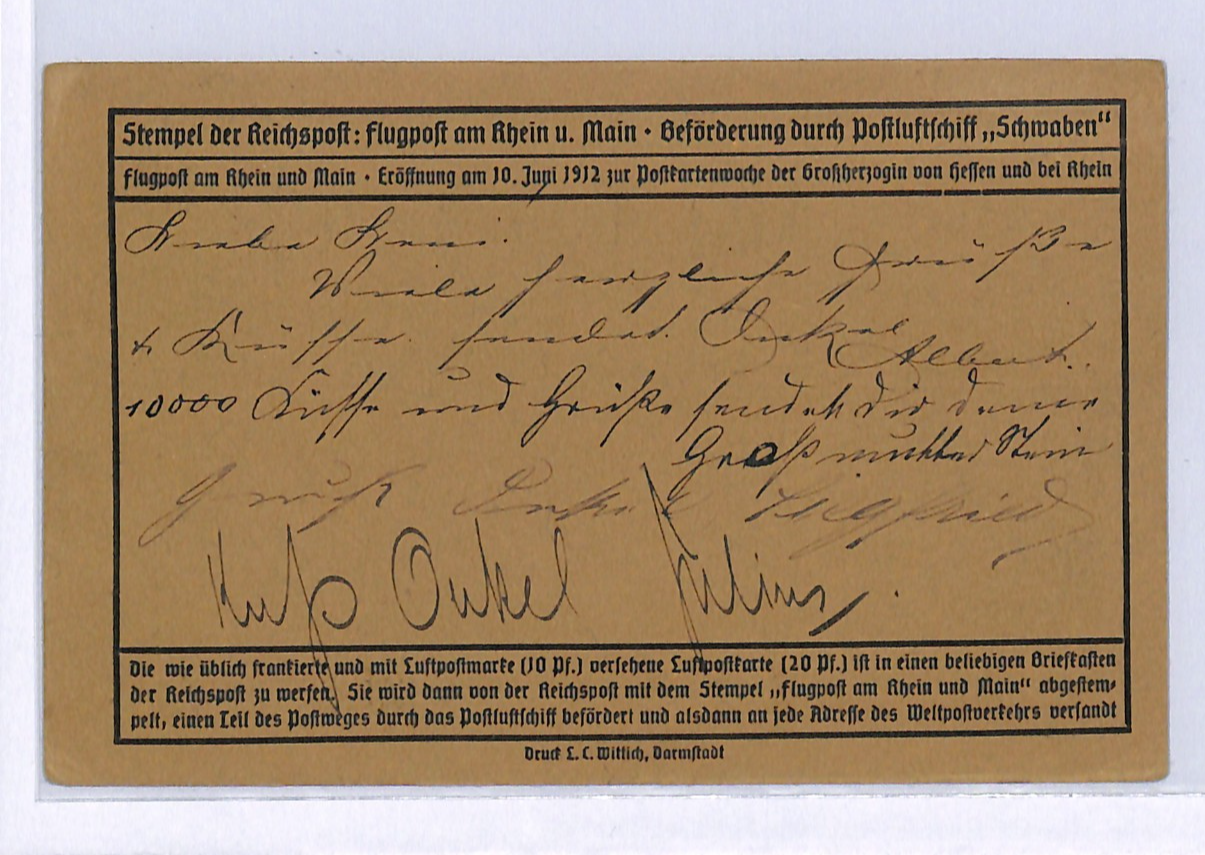 Stempel der Reichspost: Flugpost am Rhein u. Main · Beförderung durch Postluftschiff „Schwaben“
Flugpost am Rhein und Main · Eröffnung am 10. Juni 1912 zur Postkartenwoche der Großherzogin von Hessen und bei Rhein
Liebe
Viele herzliche Grüße
+ Küsse sendet Onkel
Albert.
10000 Küsse und Grüße sendet dir deine
Großmutter Stein
Gruß Onkel Siegfried
Kuß Onkel Julius.
Die wie üblich frankierte und mit Luftpostmarke (10 Pf.) versehene Luftpostkarte (20 Pf.) ist in einen beliebigen Briefkasten
der Reichspost zu werfen. Sie wird dann von der Reichspost mit dem Stempel „Flugpost am Rhein und Main“ abgestem-
pelt, einen Teil des Postweges durch das Postluftschiff befördert und alsdann an jede Adresse des Weltpostverkehrs versandt
Druck L. C. Wittich, Darmstadt